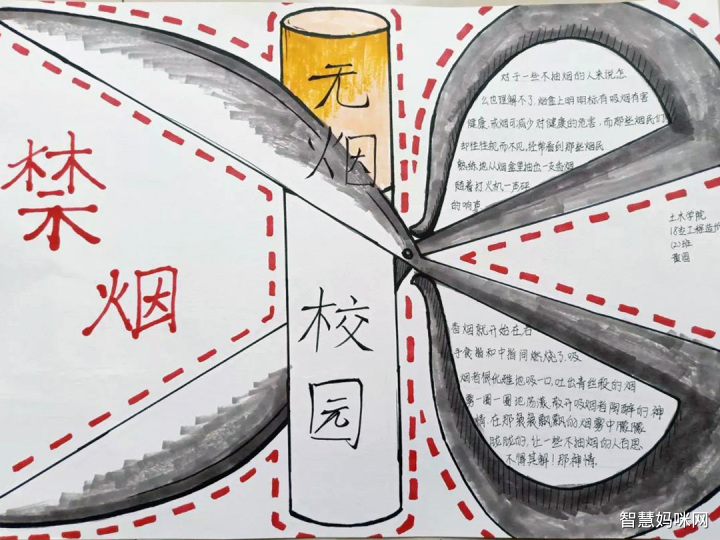 禁
烟
无
烟
校
园
对于一些不抽烟的人来说怎
么也理解不了.烟盒上明明标有吸烟有害
健康,戒烟可减少对健康的危害.而那些烟民们
却往往视而不见,经常看到那些烟民
熟练地从烟盒里抽出一支香烟
随着打火机一声
的响声
土木学院
(2)班
香烟就开始在右
手食指和中指间燃烧了.吸
烟者很优雅地吸一口,吐出青丝般的烟
雾一圈一圈地荡漾,散开吸烟者陶醉的神
情.在那袅袅飘飘的烟雾中朦朦
胧胧的,让一些不抽烟的人百思
不得其解!那神情.
智慧妈咪网